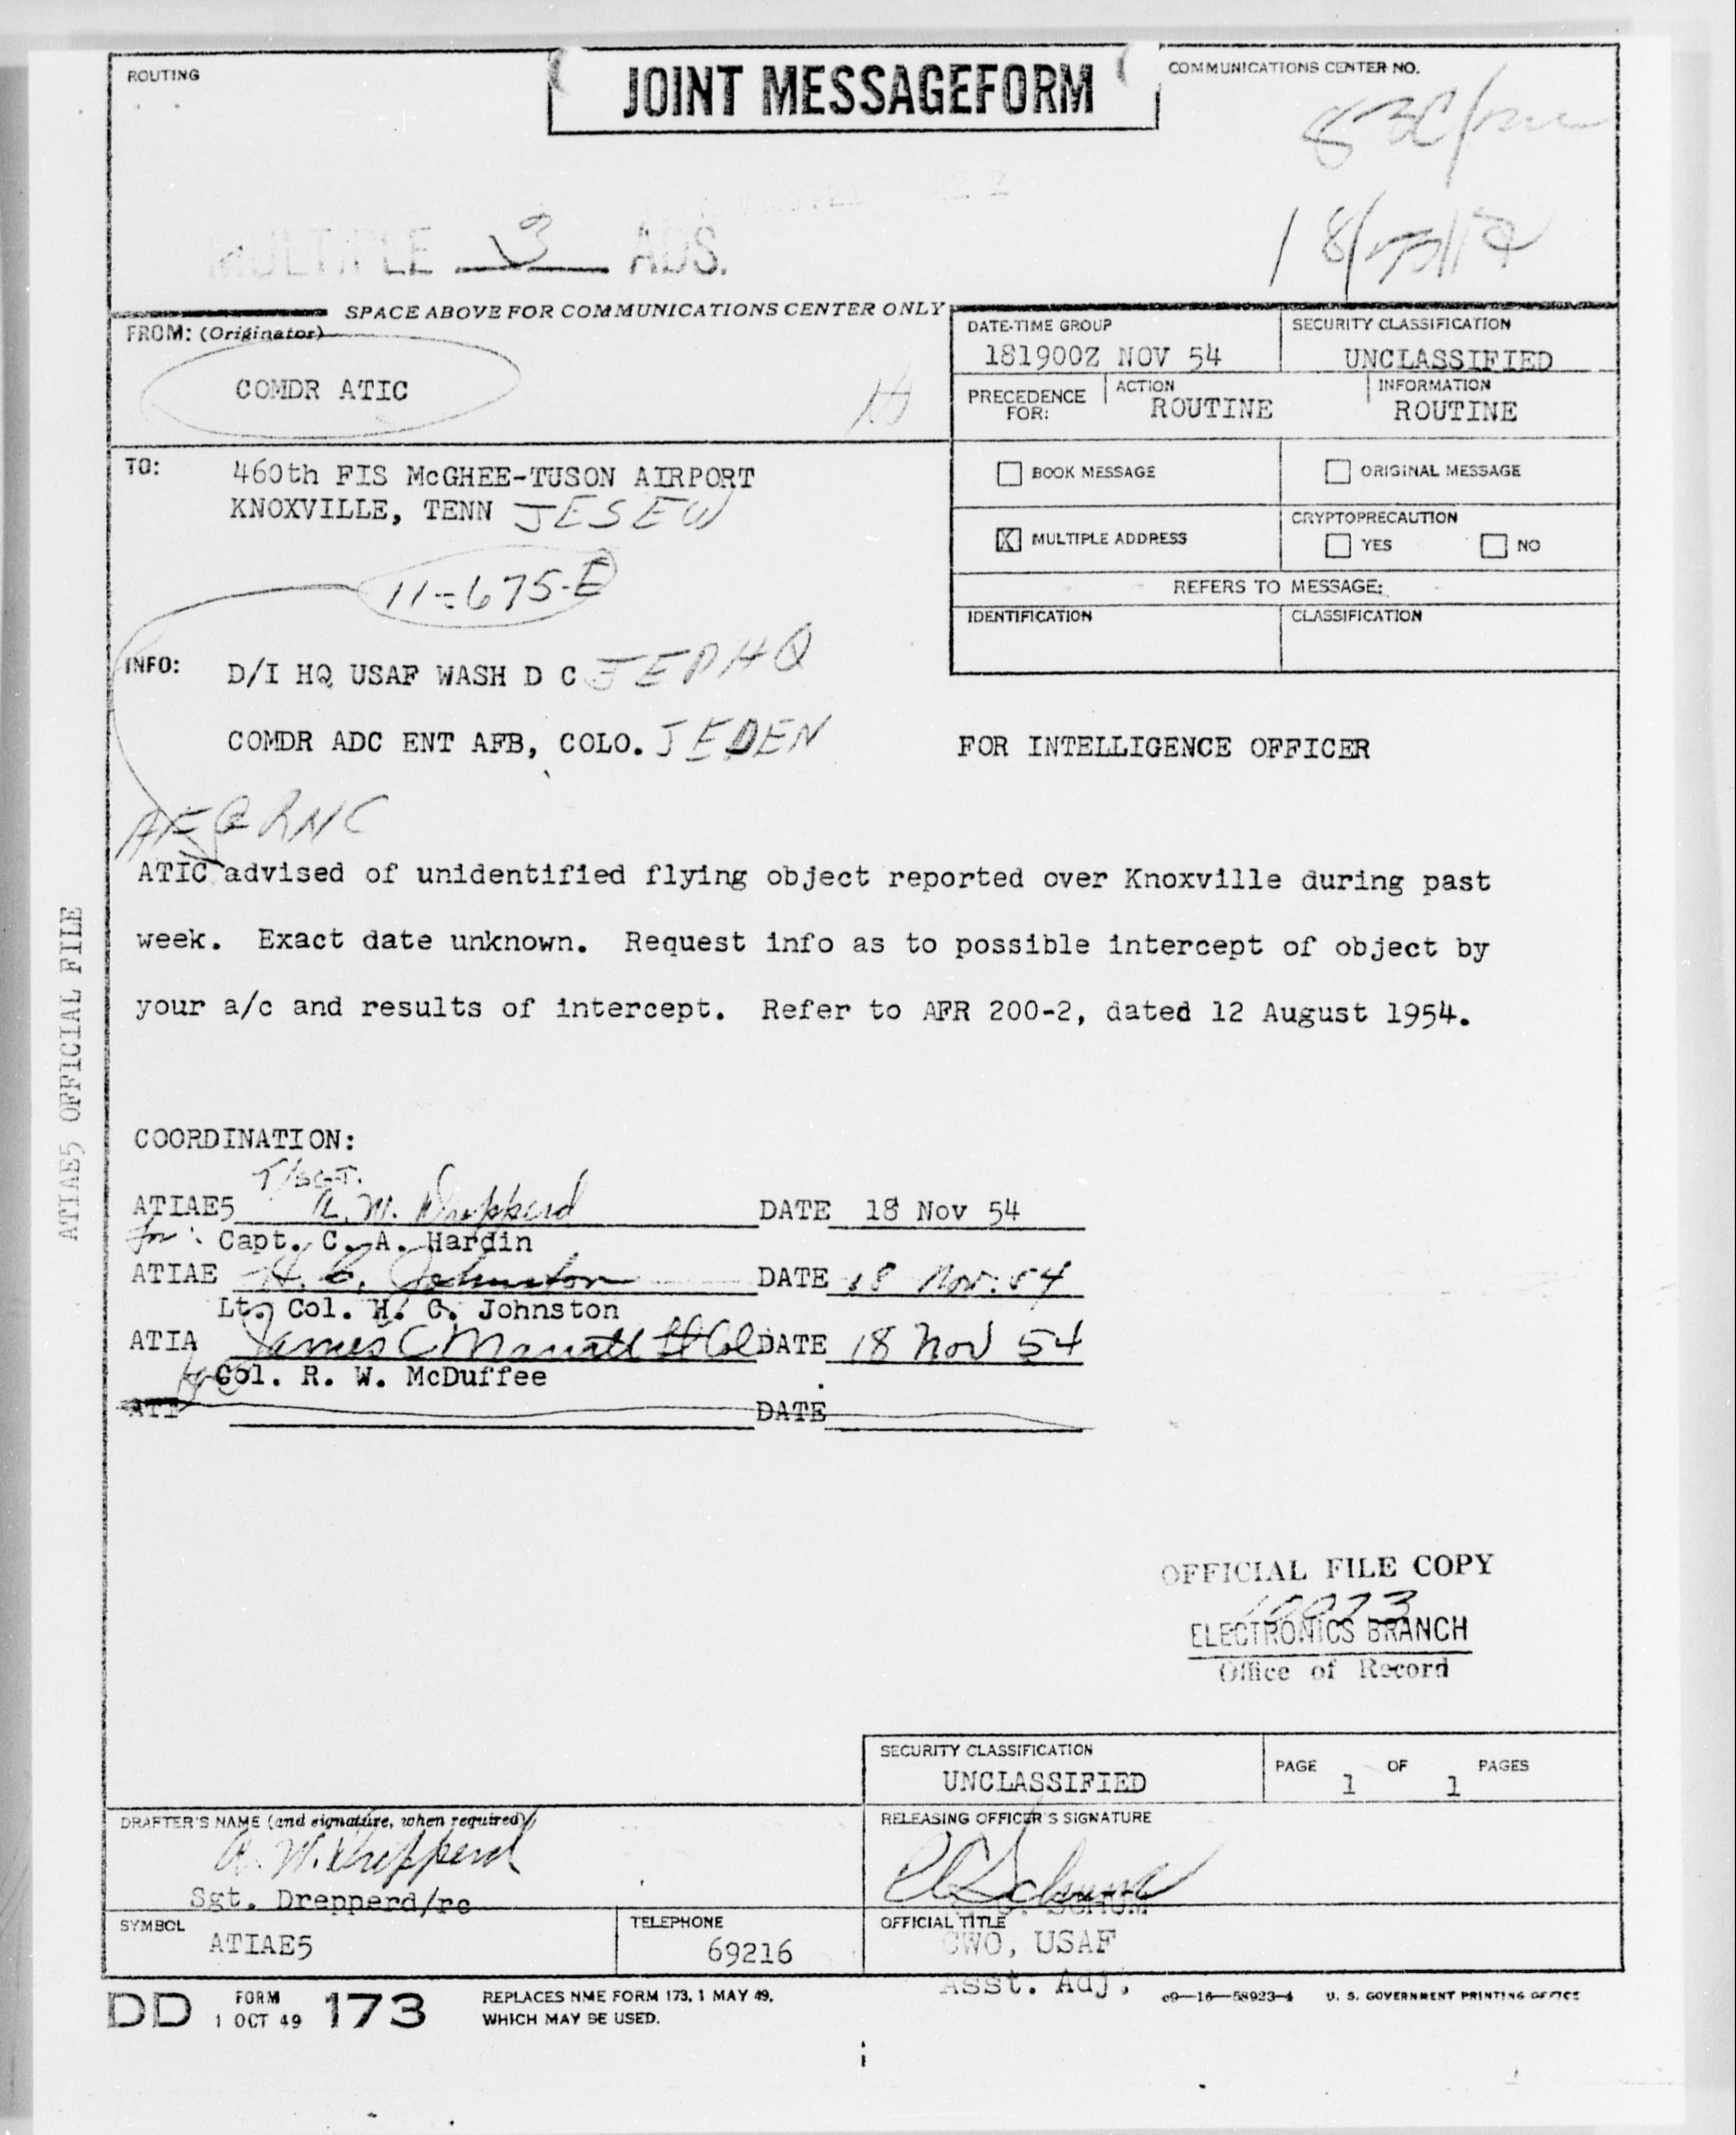 ROUTING
JOINT MESSAGEFORM
COMMUNICATIONS CENTER NO.
MULTIPLE 3 ADS.
SPACE ABOVE FOR COMMUNICATIONS CENTER ONLY
FROM: (Originator)
COMDR ATIC
DATE-TIME GROUP
181900Z NOV 54
SECURITY CLASSIFICATION
UNCLASSIFIED
PRECEDENCE FOR:
ACTION
ROUTINE
INFORMATION
ROUTINE
TO: 460th FIS McGHEE-TUSON AIRPORT
KNOXVILLE, TENN JESEW
11-675-E
BOOK MESSAGE
ORIGINAL MESSAGE
X MULTIPLE ADDRESS
CRYPTOPRECAUTION
YES NO
REFERS TO MESSAGE:
IDENTIFICATION
CLASSIFICATION
INFO: D/I HQ USAF WASH D C JEPHQ
COMDR ADC ENT AFB, COLO. JEDEN
FOR INTELLIGENCE OFFICER
ATIC advised of unidentified flying object reported over Knoxville during past
week. Exact date unknown. Request info as to possible intercept of object by
your a/c and results of intercept. Refer to AFR 200-2, dated 12 August 1954.
ATIAE5 OFFICIAL FILE
COORDINATION:
T/SGT.
ATIAE5 A. M. Drepperd DATE 18 Nov 54
for: Capt. C. A. Hardin
ATIAE H. C. Johnston DATE 18 Nov. 54
Lt. Col. H. C. Johnston
ATIA James C Lt Col DATE 18 Nov 54
for Col. R. W. McDuffee
ATI DATE
OFFICIAL FILE COPY
ELECTRONICS BRANCH
Office of Record
SECURITY CLASSIFICATION
UNCLASSIFIED
PAGE 1 OF 1 PAGES
DRAFTER'S NAME (and signature, when required)
A. M. Drepperd
Sgt. Drepperd/rc
RELEASING OFFICER'S SIGNATURE
SYMBOL
ATIAE5
TELEPHONE
69216
OFFICIAL TITLE
CWO, USAF
Asst. Adj.
DD FORM 1 OCT 49 173
REPLACES NME FORM 173, 1 MAY 49,
WHICH MAY BE USED.
c9—16—58923-4 U. S. GOVERNMENT PRINTING OFFICE